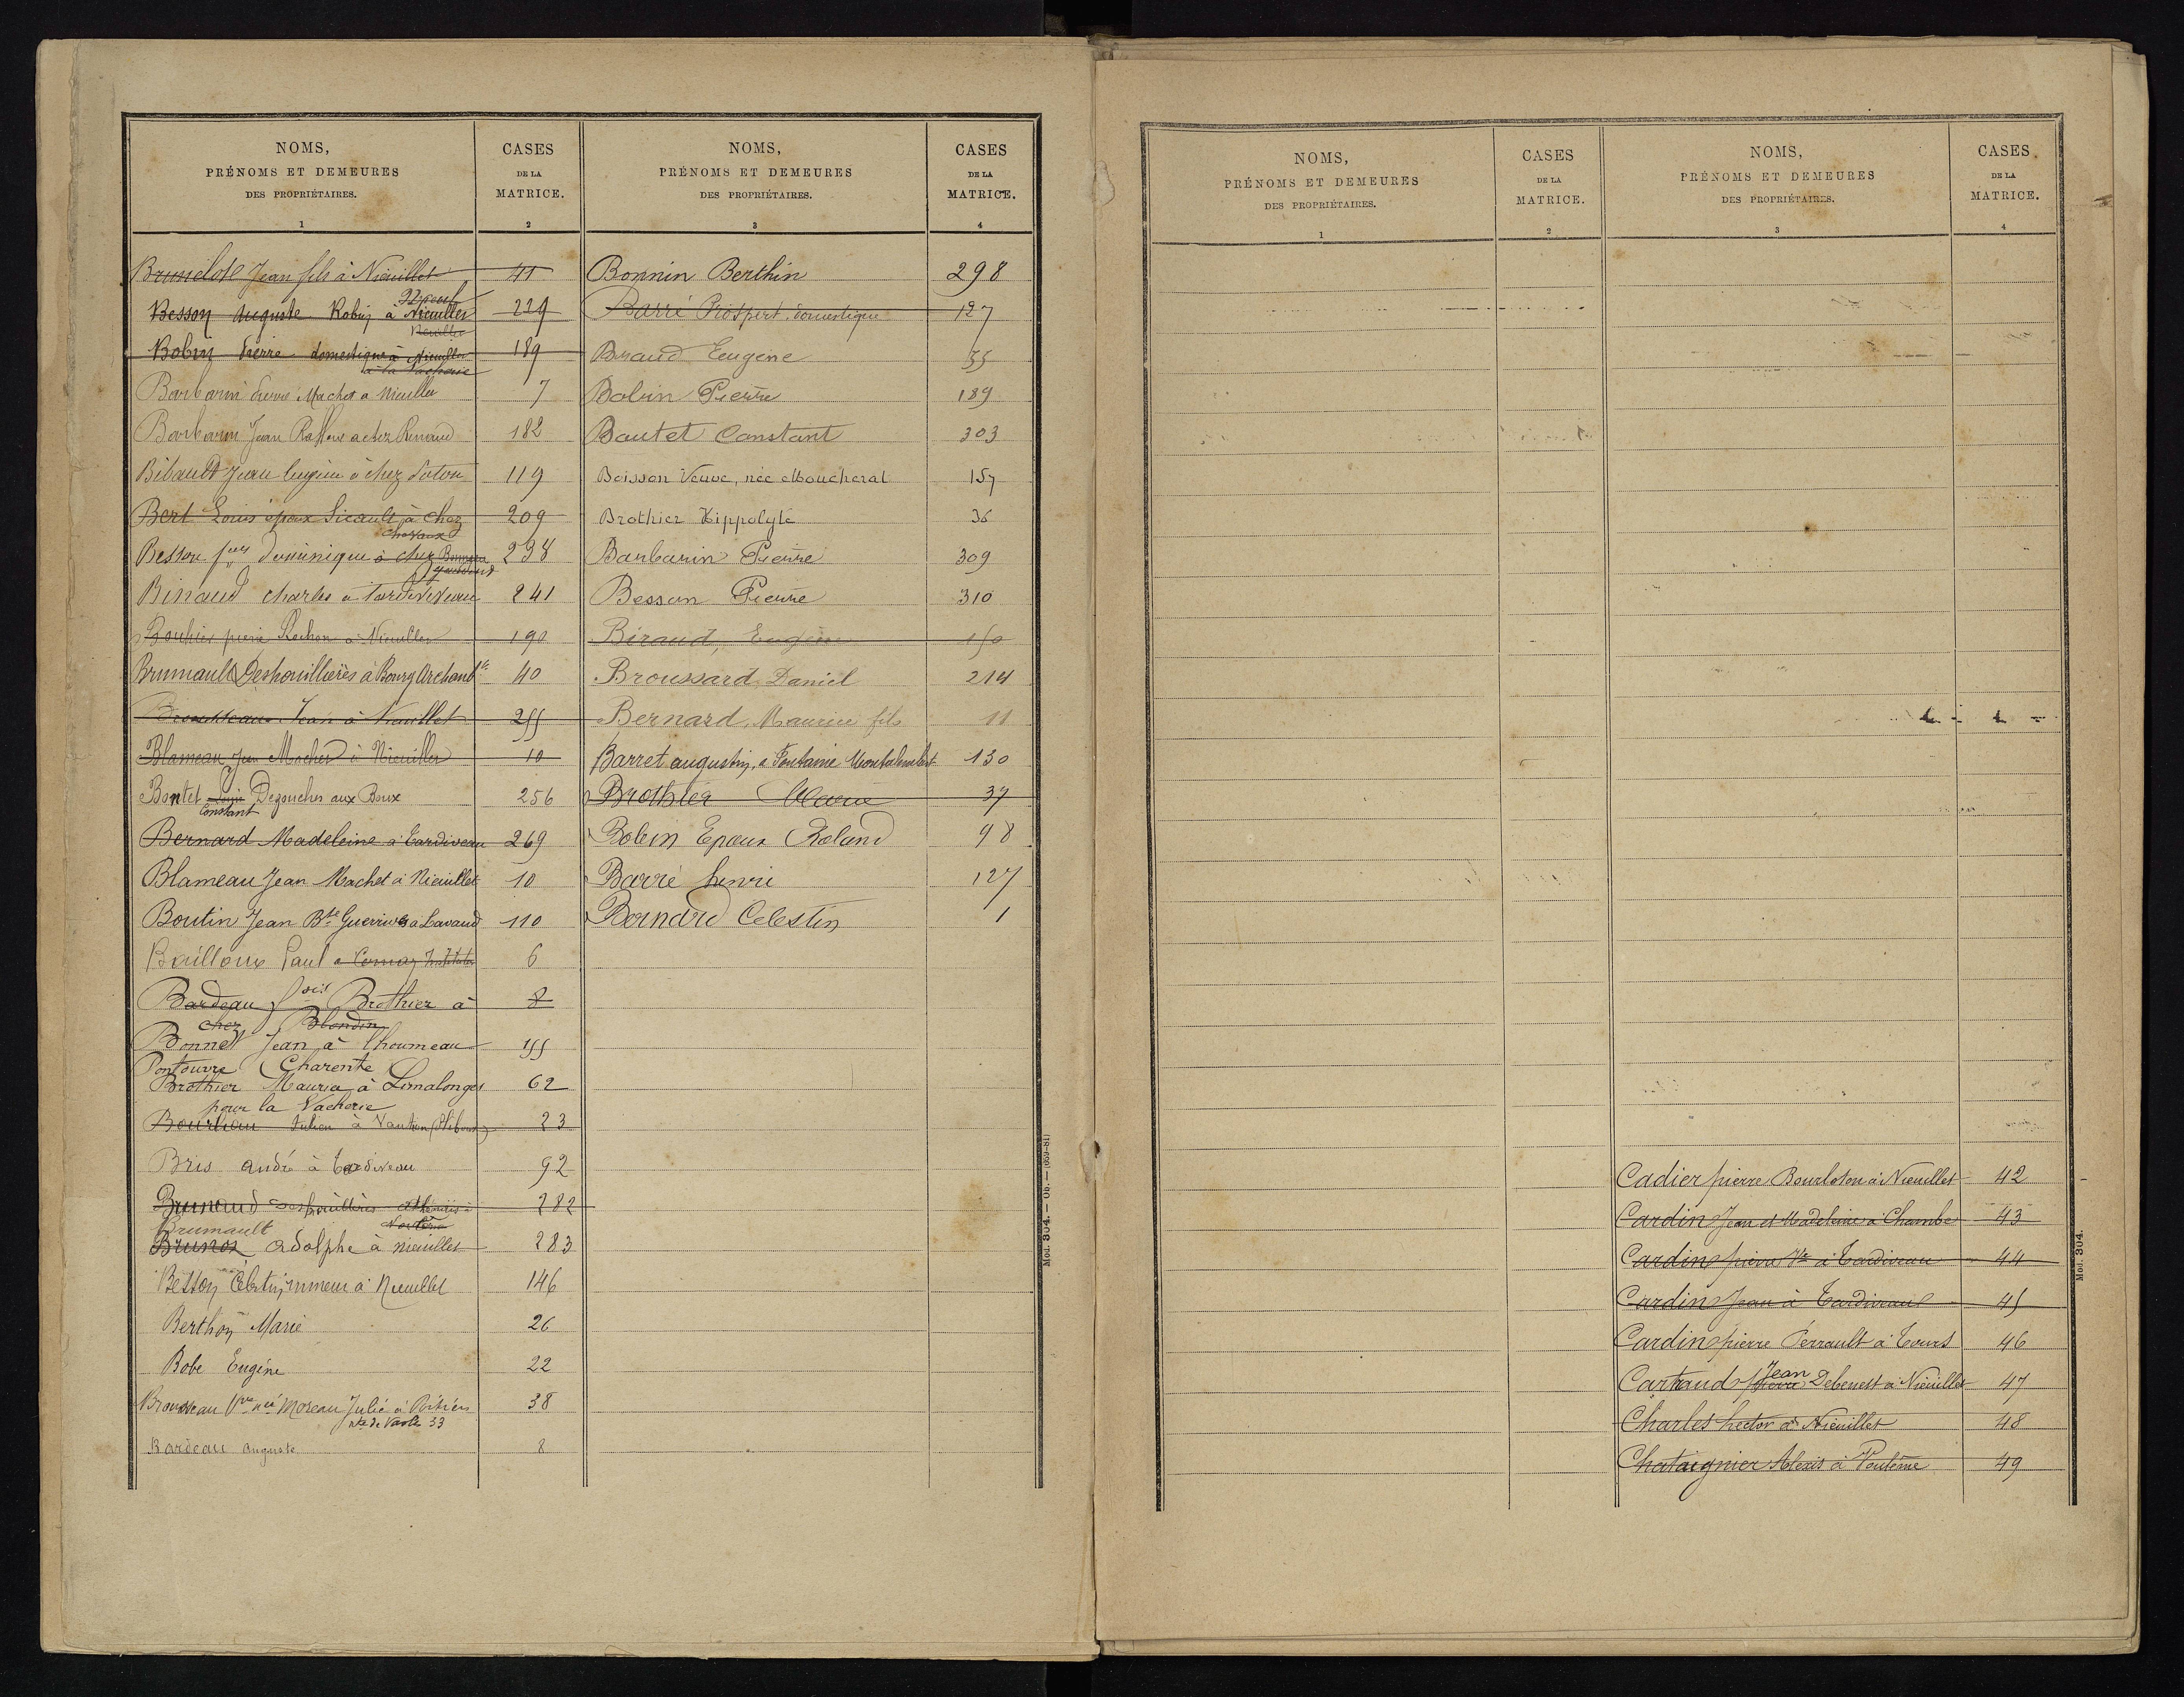 NOMS,
PRÉNOMS ET DEMEURES
DES PROPRIÉTAIRES.
1
CASES
DE LA
MATRICE.
2
Jean fils à Nieuillet 41
Besson Auguste Robin à Nieuillet 229
Bobin Pierre domestique à Nieuillet 189
à la Vacherie
Barbarin Pierre Machet à Nieuillet 7
Barbarin Jean à chez Renaud 182
Bibault Jean Eugène à chez 119
Bert Louis époux Sicault à chez 209
Besson fois Dominique à chez 298
Binaud Charles à Tardiveau 241
Bouhier pierre Rochon à Nieuillet 190
Brumault Deshouillières à Bourg Archambt 40
Brousseau Jean à Nieuillet 255
Blameau Jean Machet à Nieuillet 10
Bontet Louis Degouchis aux Boux 256
Constant
Bernard Madeleine à Tardiveau 269
Blameau Jean Machet à Nieuillet 10
Boutin Jean Bte à Lavaud 110
Paul 6
Bardeau fois Brothier à 8
chez Blondin
Bonnet Jean à Lhoumeau 155
Pontouvre Charente
Brothier Maurice à Limalonges 62
pour la Vacherie
Julien à 23
Bris André à Tardiveau 92
282
Brumault
Adolphe à Nieuillet 283
Besson Célestin à Nieuillet 146
Berthon Marie 26
Bobe Eugène 22
Brousseau Vve née Moreau Julie à Poitiers 38
33
Bardeau Auguste 8
NOMS,
PRÉNOMS ET DEMEURES
DES PROPRIÉTAIRES.
3
CASES
DE LA
MATRICE.
4
Bonnin Berthin 298
Barré Prospert, domestique 127
Braud Eugène 35
Bobin Pierre 189
Bautet Constant 303
Boisson Veuve, née Moucherat 157
Brothier Hippolyte 36
Barbarin Pierre 309
Besson Pierre 310
Béraud, Eugène 150
Broussard Daniel 214
Bernard, Maurice fils 11
Barret augustin, à Fontaine Montalembert 130
Brothier 37
Bobin Epoux Roland 98
Barré henri 127
Bernard Celestin 1
Mod. 304. — Ob. — (659-81)
NOMS,
PRÉNOMS ET DEMEURES
DES PROPRIÉTAIRES.
1
CASES
DE LA
MATRICE.
2
NOMS,
PRÉNOMS ET DEMEURES
DES PROPRIÉTAIRES.
3
CASES
DE LA
MATRICE.
4
Cadier pierre Bourloton à Nieuillet 42
Cardin Jean et Madeleine à Chambe 43
Cardin pierre Vve à Tardiveau 44
Cardin Jean à Tardiveau 45
Cardin pierre Perrault à Tours 46
Jean
Cartaud pierre Debenest à Nieuillet 47
Charles hector à Nieuillet 48
Chataignier Alexis à Voulême 49
Mod. 304.